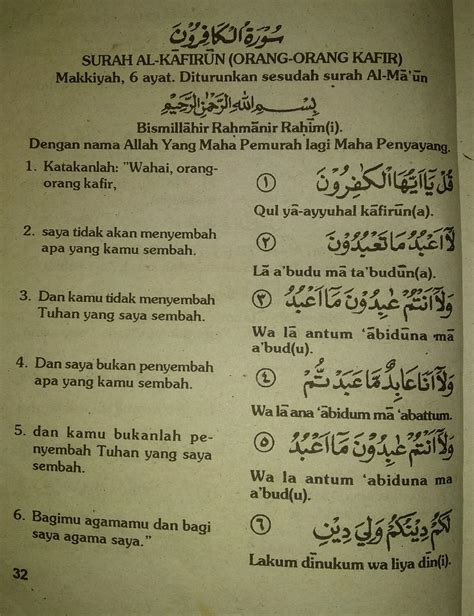 سورة الكافرون
SURAH AL-KĀFIRŪN (ORANG-ORANG KAFIR)
Makkiyah, 6 ayat. Diturunkan sesudah surah Al-Mā'ūn
بِسْمِ اللهِ الرَّحْمٰنِ الرَّحِيْمِ
Bismillāhir Raḥmānir Raḥīm(i).
Dengan nama Allah Yang Maha Pemurah lagi Maha Penyayang.
1. Katakanlah: "Wahai, orang-
orang kafir,
قُلْ يَآ اَيُّهَا الْكٰفِرُوْنَ ١
Qul yā-ayyuhal kāfirūn(a).
2. saya tidak akan menyembah
apa yang kamu sembah.
لَآ اَعْبُدُ مَا تَعْبُدُوْنَ ٢
Lā a'budu mā ta'budūn(a).
3. Dan kamu tidak menyembah
Tuhan yang saya sembah.
وَلَآ اَنْتُمْ عٰبِدُوْنَ مَآ اَعْبُدُ ٣
Wa lā antum 'ābiduna mā
a'bud(u).
4. Dan saya bukan penyembah
apa yang kamu sembah.
وَلَآ اَنَا عَابِدٌ مَّا عَبَدْتُّمْ ٤
Wa lā ana 'ābidum mā 'abattum.
5. dan kamu bukanlah pe-
nyembah Tuhan yang saya
sembah.
وَلَآ اَنْتُمْ عٰبِدُوْنَ مَآ اَعْبُدُ ٥
Wa la antum 'abiduna ma
a'bud(u).
6. Bagimu agamamu dan bagi
saya agama saya."
لَكُمْ دِيْنُكُمْ وَلِيَ دِيْنِ ٦
Lakum dīnukum wa liya dīn(i).
32